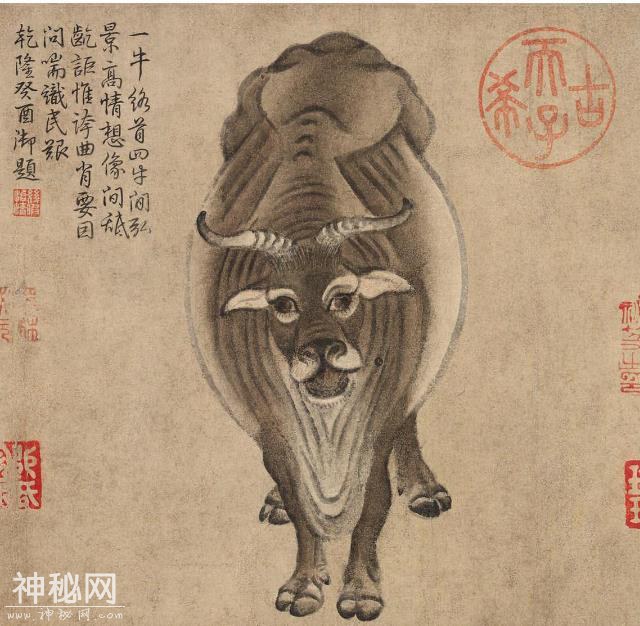 一牛絡首四牛閒弘
景高情想像間舐
齕詎惟誇曲肖要因
問喘識民艱
乾隆癸酉御題
古希天子
神秘网
www.神秘网.com